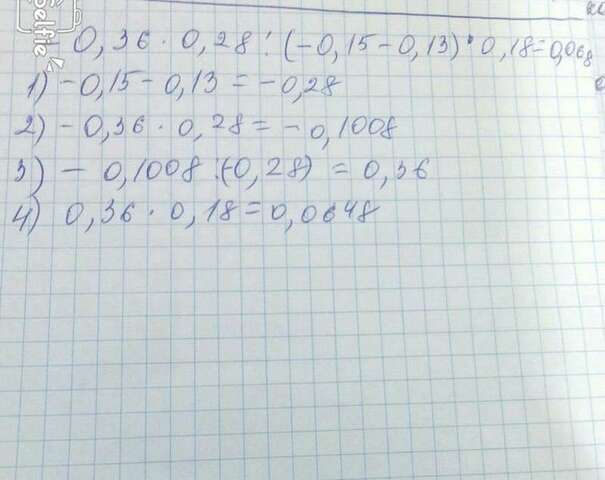 Selfie
- 0,36 · 0,28 : (-0,15 - 0,13) · 0,18 = 0,068
1) - 0,15 - 0,13 = - 0,28
2) - 0,36 · 0,28 = - 0,1008
3) - 0,1008 : (-0,28) = 0,36
4) 0,36 · 0,18 = 0,0648